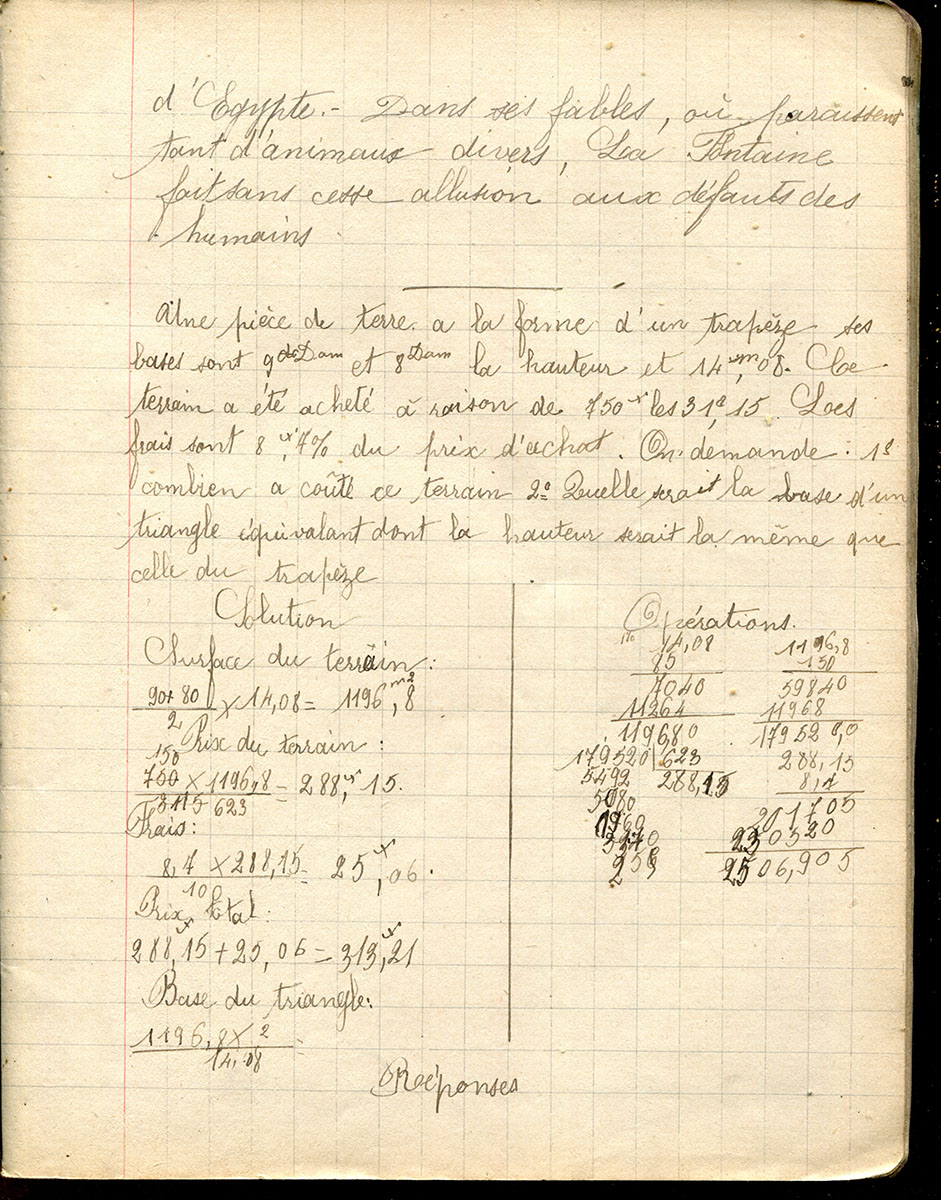 d'Egypte. - Dans ses fables, où paraissent
tant d'animaux divers, La Fontaine
fait sans cesse allusion aux défauts des
humains.
Une pièce de terre a la forme d'un trapèze ses
bases sont 9 Dam et 8 Dam la hauteur et 14 m, 08. Ce
terrain a été acheté à raison de 750 f les 31 a, 15. Les
frais sont 8 f, 7% du prix d'achat. On demande. 1º
combien a coûté ce terrain 2º Quelle serait la base d'un
triangle équivalant dont la hauteur serait la même que
celle du trapèze
Solution
Surface du terrain:
90+80
2
× 14,08 = 1196 m2, 8
Prix du terrain:
150
750 × 1196,8
3115 623
= 288 f, 15.
Frais:
8,7 × 288,15
10
= 25 f, 06.
Prix total:
288 f, 15 + 25, 06 = 313 f, 21
Base du triangle:
1196,8 × 2
14,08
=
Opérations.
14,08
85
7040
11264
119680
1196,8
150
59840
11968
179520,0
179520 623
5492 288,15
5080
0960
3370
255
288,15
8,7
201705
230520
2506,905
Réponses